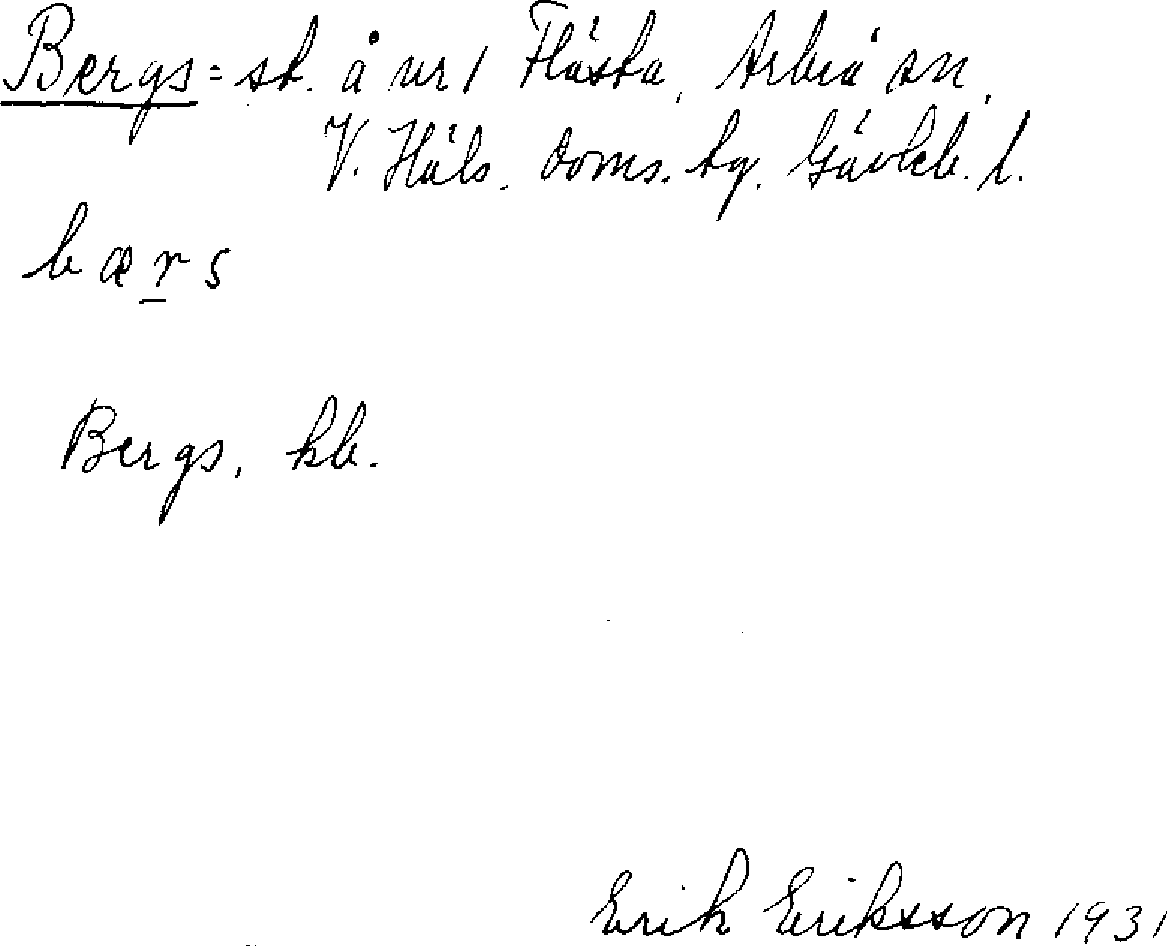 Bergs = st. å nr 1 Flästa, Arbrå sn,
V. Häls. doms. tg. Gävleb. l.
bærs
Bergs, kb.
Erik Eriksson 1931